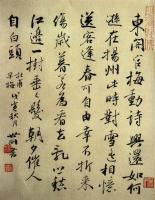 東閣官梅動詩興還如何
遜在揚州此時對雪遙相憶
送客逢春可自由幸不折來
傷歲暮若為看去亂鄉愁
江邊一樹垂垂發朝夕催人
自白頭